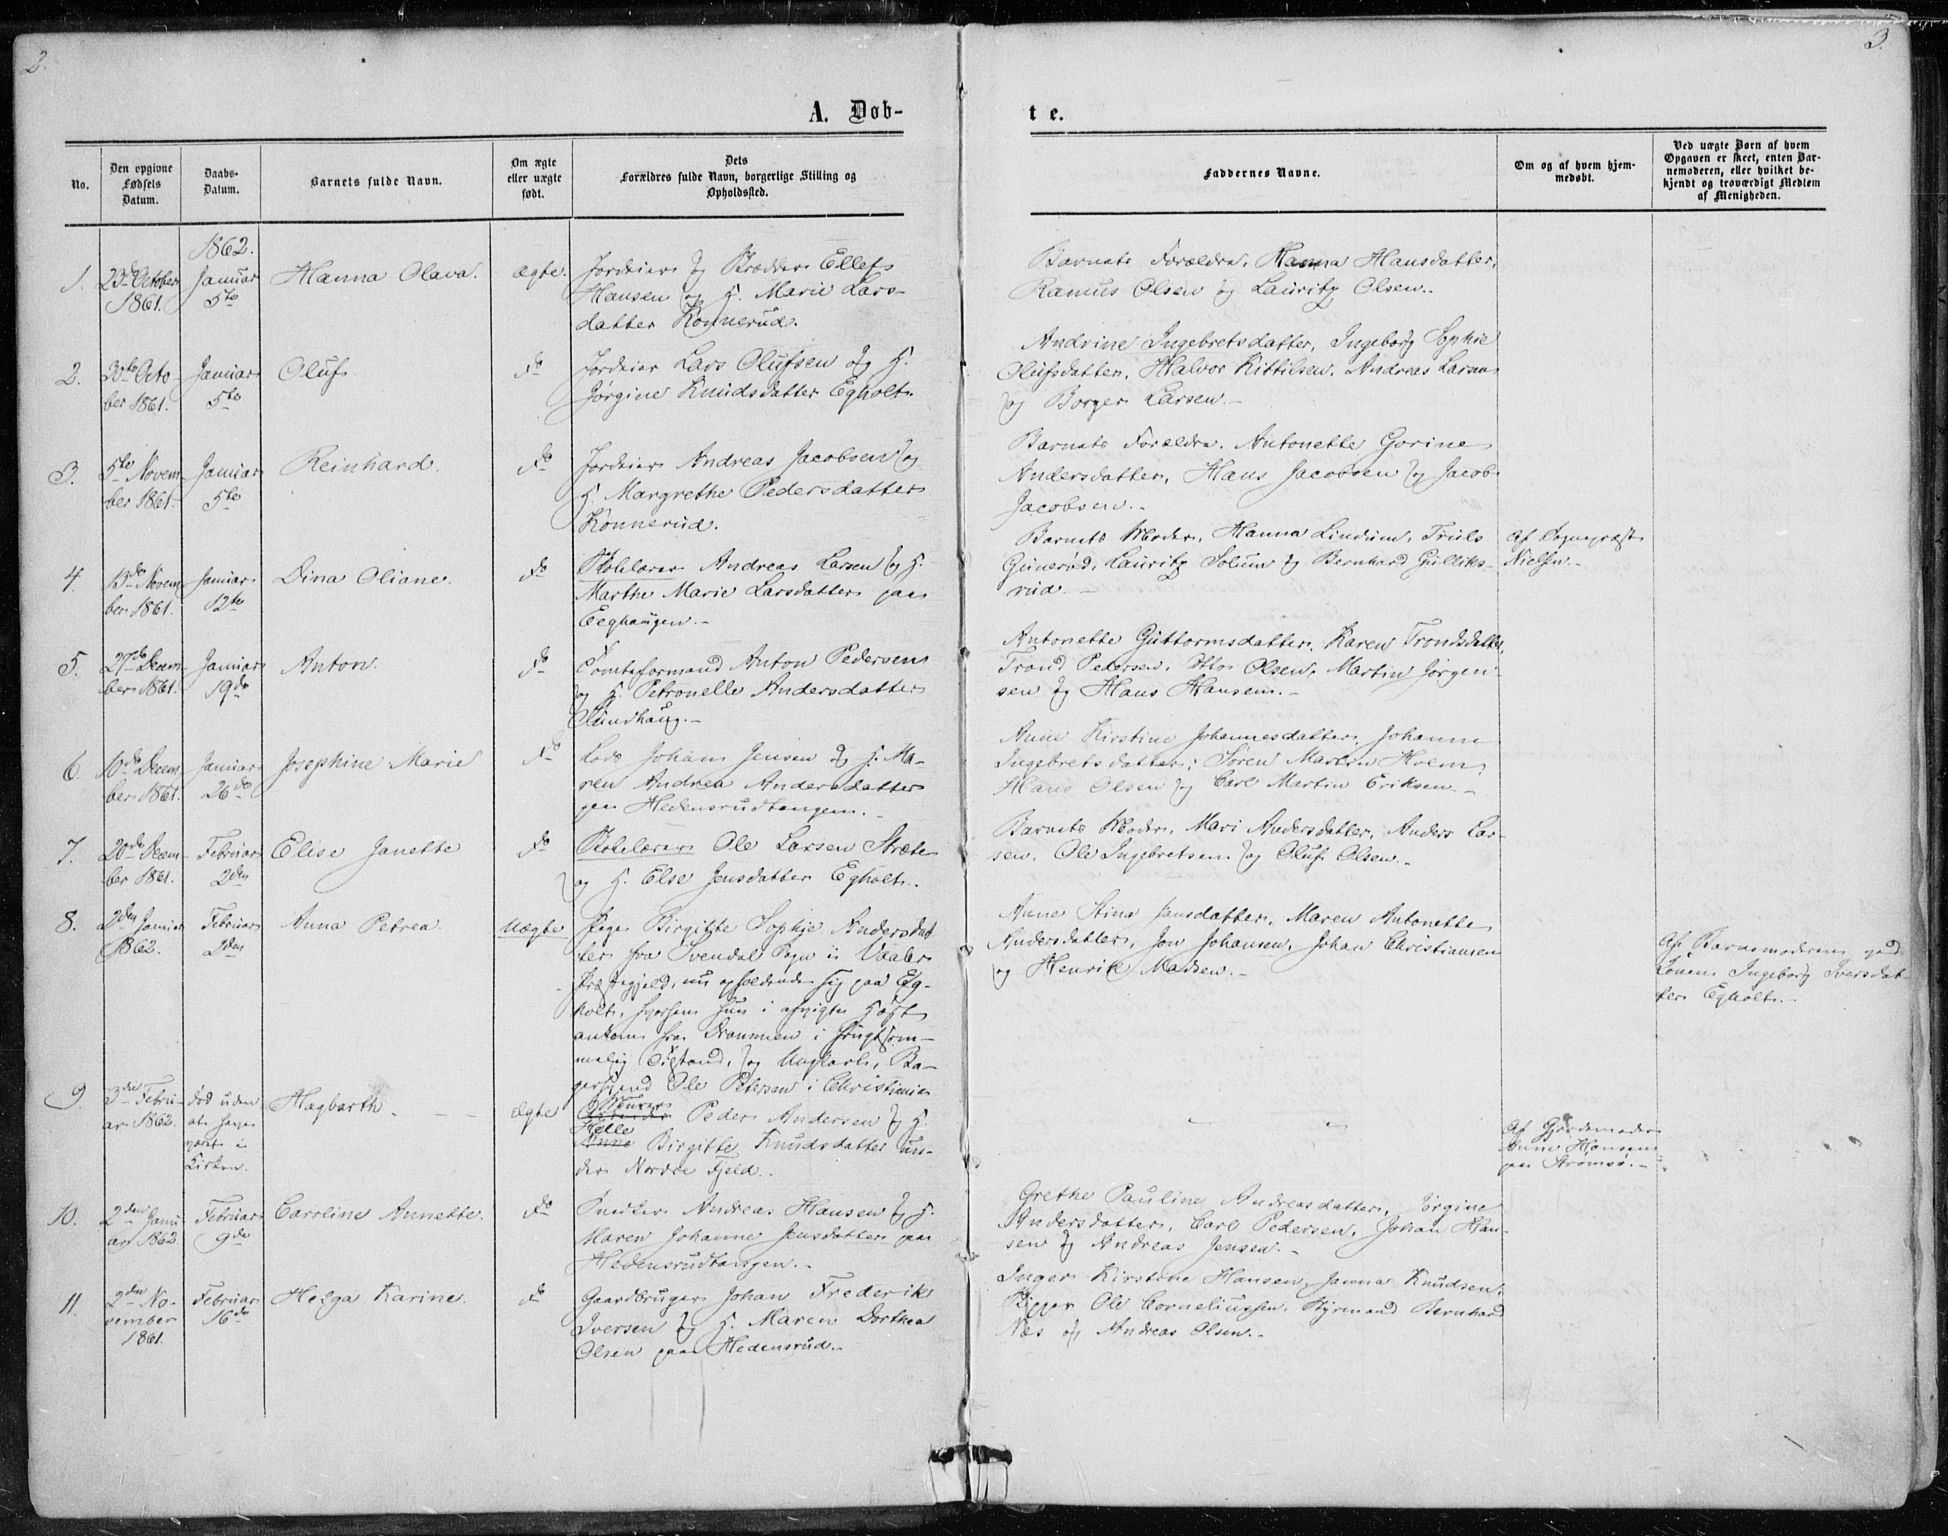 2.
3.
A. Døb-
te.
No.
Den opgivne Fødsels Datum.
Daabs-Datum.
Barnets fulde Navn.
Om ægte eller uægte født.
Dets Forældres fulde Navn, borgerlige Stilling og Opholdssted.
Faddernes Navne.
Om og af hvem hjemmedøbt.
Ved uægte Børn af hvem Opgaven er skeet, enten Barnemoderen, eller hvilket bekjendt og troværdigt Medlem af Menigheden.
1862.
1. 23de October 1861. Januar 5te Hanna Olava. ægte.
Jordeier og Ellef
Hansen og H. Marie Lars-
datter Konnerud.
Barnets Forældre, Hanna Hansdatter,
Ramus Olsen og Lauritz Olsen.
2. 30te October 1861. Januar 5te Oluf. do
Jordeier Lars Olufsen og H.
Jørgine Knudsdatter Egholt.
Andrine Ingebretsdatter, Ingeborg Sophie
Olufsdatter, Halvor Kittilsen, Andreas Larsen
og Borger Larsen.
3. 5te November 1861. Januar 5te Reinhard. do
Jordeier Andreas Jacobsen og
H. Margrethe Pedersdatter
Konnerud.
Barnets Forældre, Antonette Gorine
Andersdatter, Hans Jacobsen og Jacob
Jacobsen.
4. 13de November 1861. Januar 12te Dina Oliane. do
Skolelærer Andreas Larsen og H.
Marthe Marie Larsdatter paa
Eeghaugen.
Barnets Moder, Hanna Lindum, Truls
Gunerød, Lauritz Solum og Bernhard Gulliks-
rud.
Af Sognepræst
Nielsen.
5. 27de 1861. Januar 19de Anton. do
Tomteformand Anton Pedersen
og H. Petronelle Andersdatter
Antonette Guttormsdatter, Karen Trondsdatter,
Trond Pedersen, Otto Olsen, Martin Jørgen-
sen og Hans Hansen.
6. 10de December 1861. Januar 26de Josephine Marie do
Lods Johan Jensen og H. Ma-
ren Andrea Andersdatter
paa Hedensrudtangen.
Anne Kirstine Johannesdatter, Johanne
Ingebretsdatter, Søren Martin Hoem,
Hans Olsen og Carl Martin Eriksen.
7. 20de December 1861. Februar 2den Elise Janette do
Skolelærer Ole Larsen Stræte
og H. Else Jensdatter Egholt.
Barnets Moder, Mari Andersdatter, Anders Lar-
sen, Ole Ingebretsen og Oluf Olsen.
8. 2den Januar 1862. Februar 2den Anna Petrea. Uægte
Pige Birgitte Sophie Andersdat-
ter fra Svendal Sogn i Vaaler
Præstegjeld, nu opholdende sig paa Eg-
holt, hvorhen hun i afvigte Høst
ankom fra Drammen i frugtsom-
melig Tilstand, og Ungkarl, Ba-
gersvend Ole Petersen i Christiania
Anne Stina Jansdatter, Maren Antonette
Andersdatter, Jon Johansen, Johan Christiansen
og Henrik Madsen.
Af Barnemoderen og
Ingeborg Iversdat-
ter Egholt.
9. 3die Februar 1862. død uden at have været i Kirken. Hagbarth. ægte
Murer Peder Andersen og H.
Helle Birgitte Knudsdatter un-
der Nordre Fjeld.
Af Gjordemoder
Anne Hansen
paa Strømsø.
10. 2den Januar 1862. Februar 9de Caroline Annette. do
Snedker Andreas Hansen og H.
Maren Johanne Jensdatter paa
Hedensrudtangen.
Grethe Pauline Andreasdatter, Jørgine
Andersdatter, Carl Pedersen, Johan Han-
sen og Andreas Jensen.
11. 2den November 1861. Februar 16de Helga Karine. do
Gaardbruger Johan Frederik
Iversen og H. Maren Dorthea
Olsen paa Hedensrud.
Inger Kirstine Hansen, Janna Knudsen,
Skipper Ole Corneliussen, Styrmand Bernhard
Næs og Andreas Olsen.